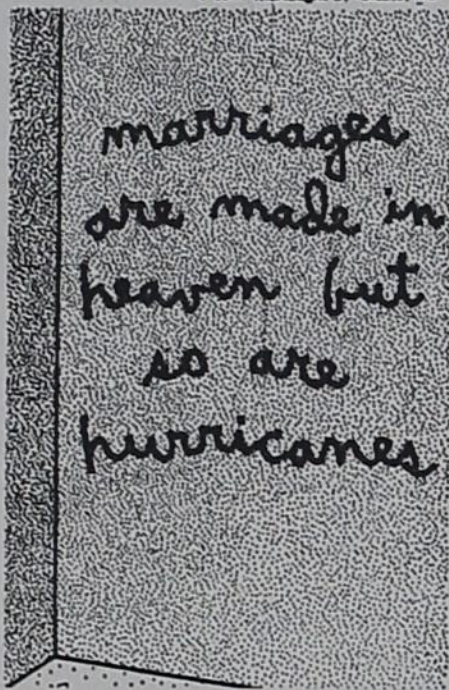 marriages
are made in
heaven but
so are
hurricanes